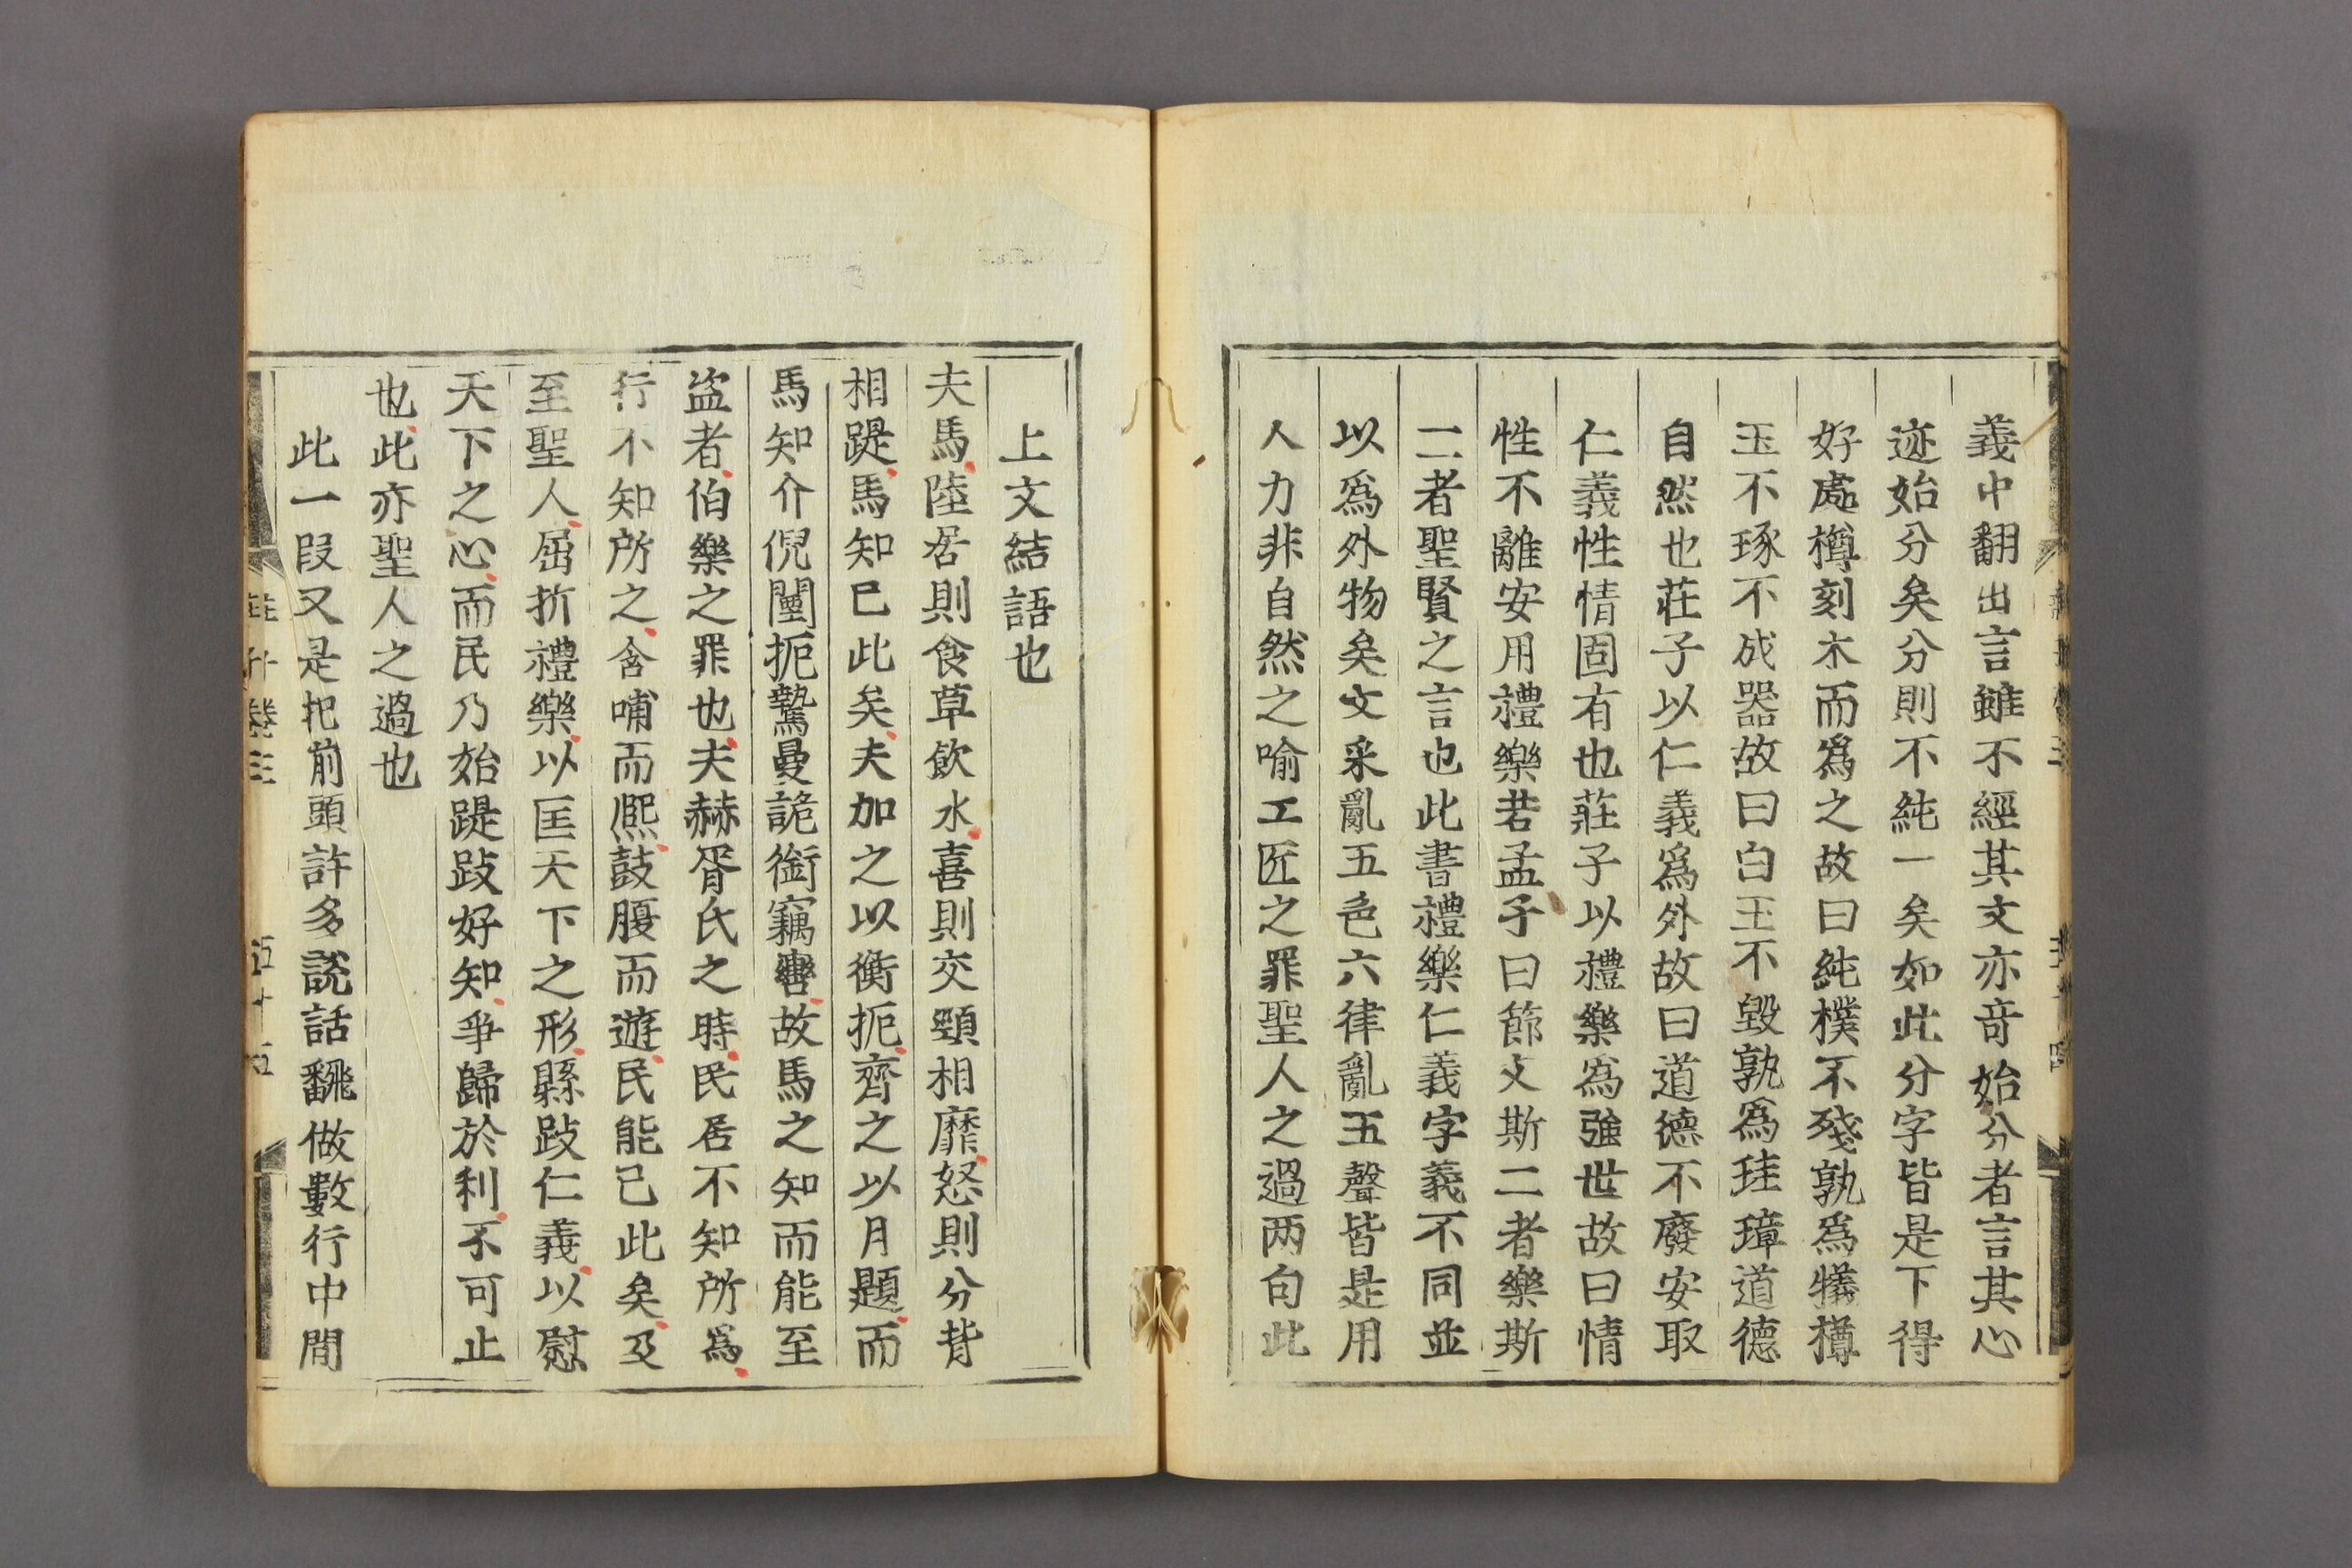 義中翻出言雖不經其文亦竒始分者言其心
迹始分矣分則不純一矣如此分字皆是下得
好處樽刻木而爲之故曰純樸不殘孰爲犧樽
玉不琢不成器故曰白玉不毀孰爲珪璋道德
自然也莊子以仁義爲外故曰道德不廢安取
仁義性情固有也莊子以禮樂爲強世故曰情
性不離安用禮樂若孟子曰節文斯二者樂斯
二者聖賢之言也此書禮樂仁義字義不同並
以爲外物矣文采亂五色六律亂五聲皆是用
人力非自然之喻工匠之罪聖人之過两句此
上文結語也
夫馬陸居則食草飲水喜則交頸相靡怒則分背
相踶馬知已此矣夫加之以衡扼齊之以月題而
馬知介倪闉扼鷙曼詭銜竊轡故馬之知而能至
盗者伯樂之罪也夫赫胥氏之時民居不知所爲
行不知所之含哺而熈鼓腹而遊民能已此矣及
至聖人屈折禮樂以匡天下之形縣跂仁義以慰
天下之心而民乃始踶跂好知爭歸於利不可止
也此亦聖人之過也
此一段又是把前頭許多說話翻做數行中間
莊子卷三
五十五